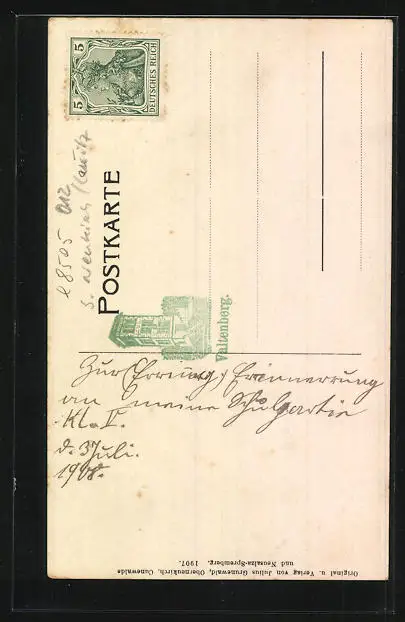 5 DEUTSCHES REICH 5
e 8505 012
s. Neukirch/Lausitz
POSTKARTE
Valtenberg.
Zur Erinnerung
an meine Schulpartie
Kl. II.
d. 3 Juli.
1908.
Original u. Verlag von Julius Grunewald, Oberneukirch, Cunewalde
und Neusalza-Spremberg. 1907.